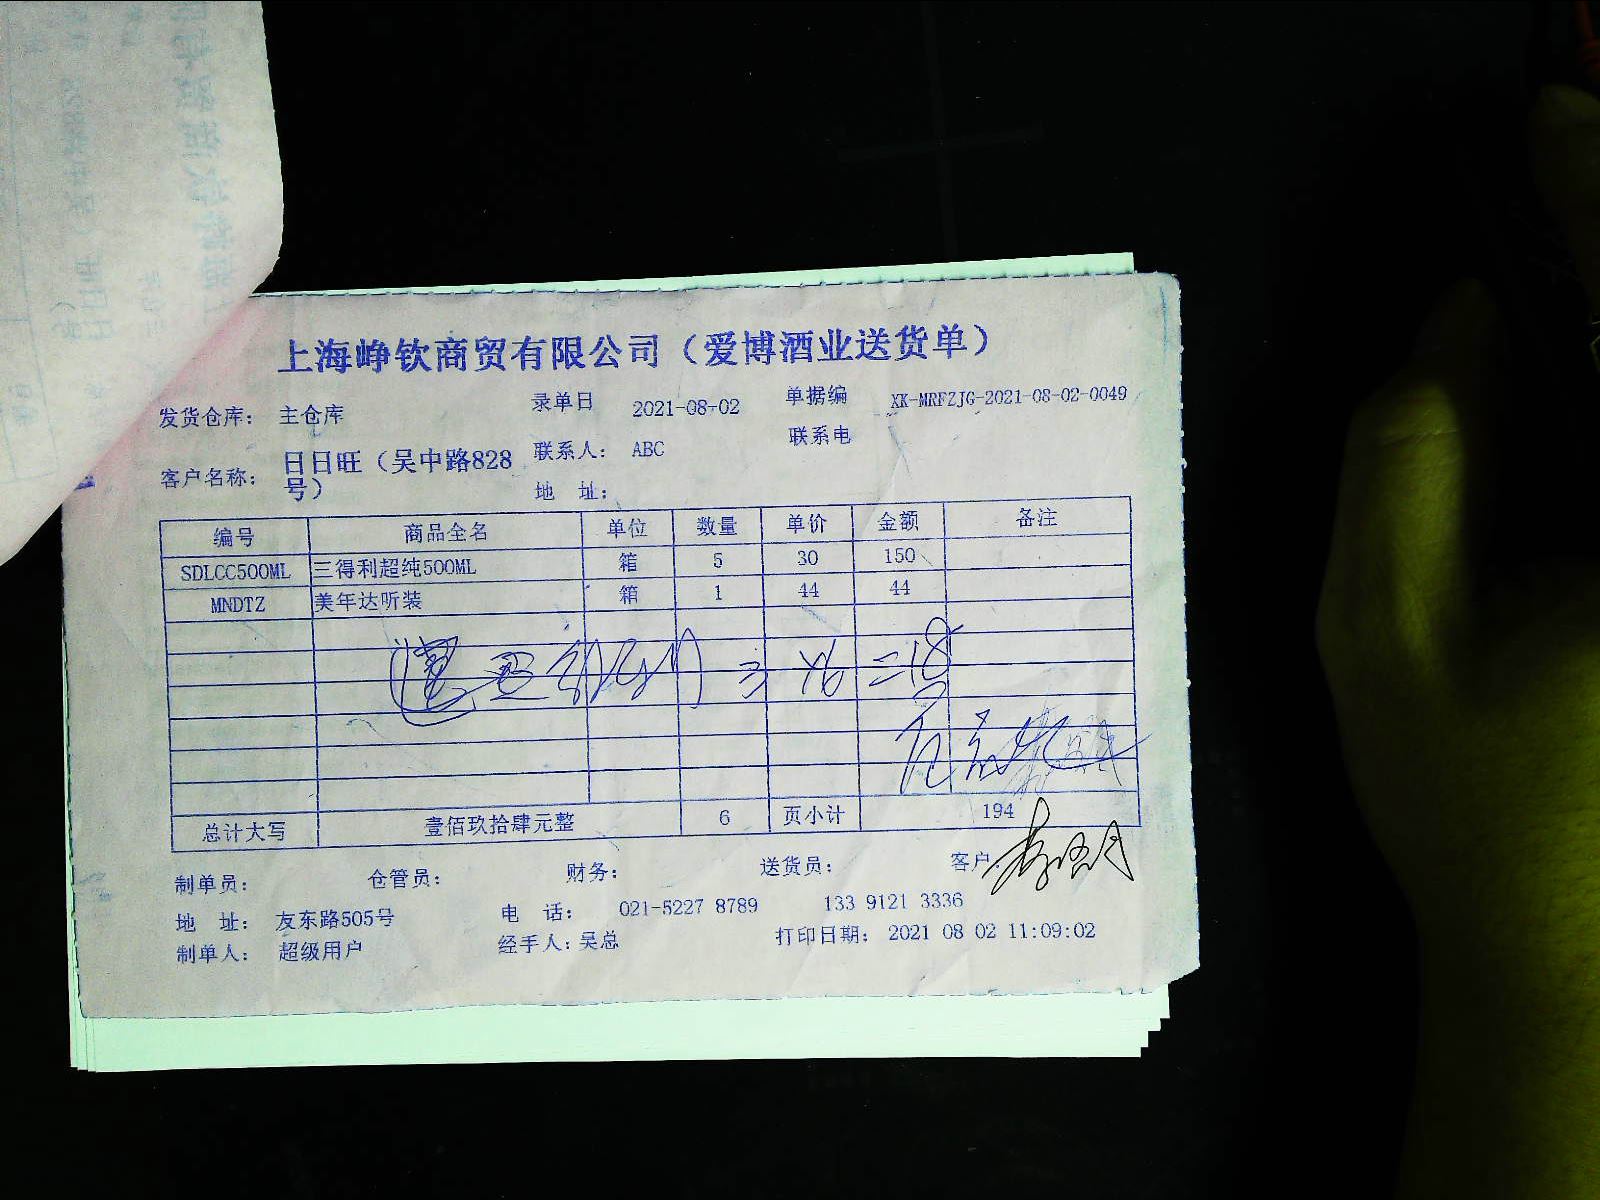 上海峥钦商贸有限公司（爱博酒业送货单）
发货仓库： 主仓库 录单日 2021-08-02 单据编 XK-MRFZJG-2021-08-02-0049
客户名称： 日日旺（吴中路828号） 联系人： ABC 联系电
地 址：
编号 商品全名 单位 数量 单价 金额 备注
SDLCC500ML 三得利超纯500ML 箱 5 30 150
MNDTZ 美年达听装 箱 1 44 44
3 X6 =18
总计大写 壹佰玖拾肆元整 6 页小计 194
制单员： 仓管员： 财务： 送货员： 客户：
地 址： 友东路505号 电 话： 021-5227 8789 133 9121 3336
制单人： 超级用户 经手人：吴总 打印日期： 2021 08 02 11:09:02